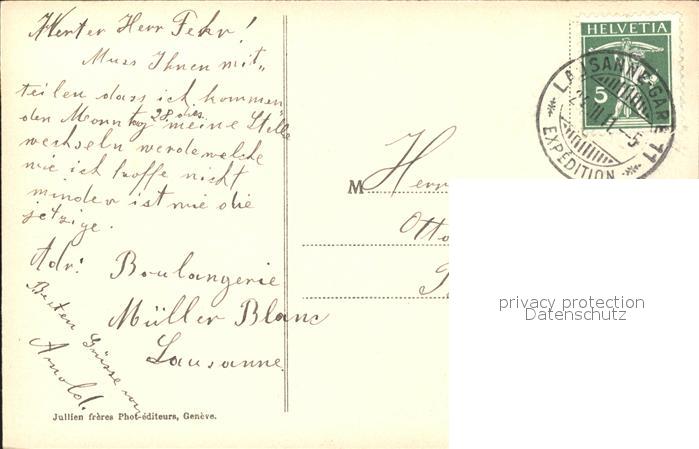 Werter Herr Fehr!
Muss Ihnen mit„
teilen dass ich kommen
den Monntag 28 dies.
meine Stelle
wechseln werde welche
wie ich hoffe nicht
minder ist wie die
jetzige.
Adr: Boulangerie
Müller Blanc
Lausanne.
Besten Grüsse von
Arnold.
Jullien frères Phot-éditeurs, Genève.
HELVETIA
5
LAUSANNE-GARE 11
EXPÉDITION
M Herr
Otto
privacy protection
Datenschutz